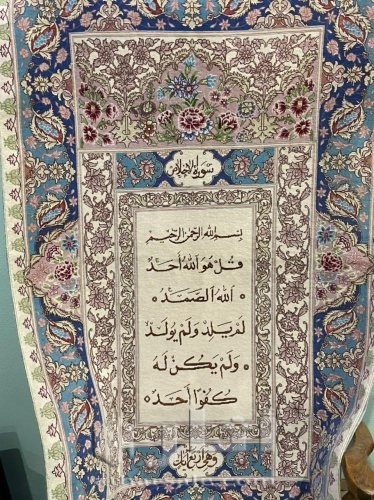 سورة الاخلاص
بِسْمِ اللهِ الرَّحْمٰنِ الرَّحِيْمِ
قُلْ هُوَ اللهُ اَحَدٌ
اَللهُ الصَّمَدُ
لَمْ يَلِدْ وَلَمْ يُولَدْ
وَلَمْ يَكُنْ لَهُ
كُفُوًا اَحَدٌ
وهي اربع آيات